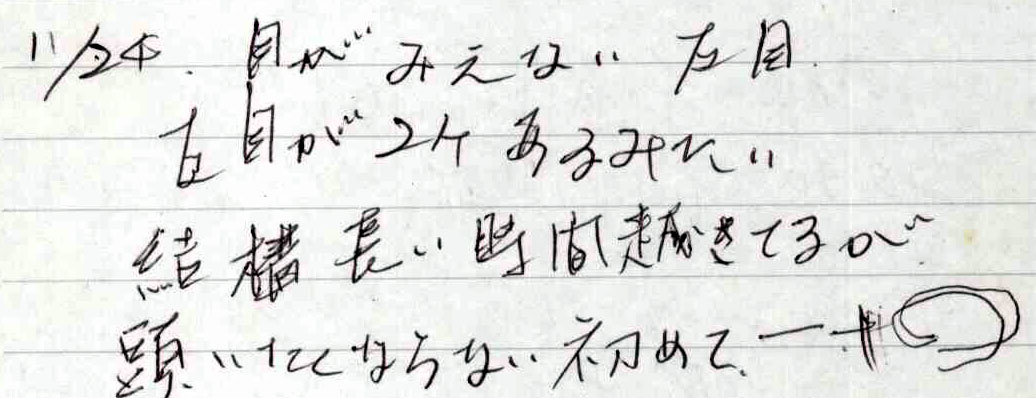 11/24. 目がみえない 左目.
左目が2ケあるみたい
結構長い時間起きてるが
頭いたくならない.初めて.